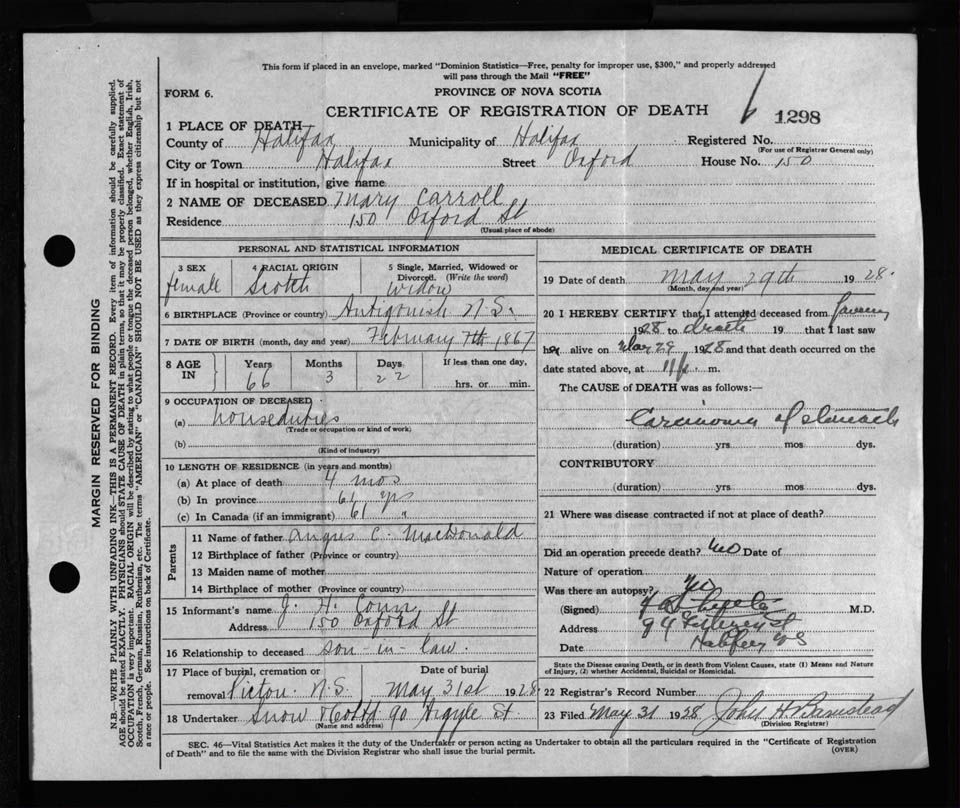 This form if placed in an envelope, marked "Dominion Statistics—Free, penalty for improper use, $300," and properly addressed
will pass through the Mail "FREE"
FORM 6.
PROVINCE OF NOVA SCOTIA
CERTIFICATE OF REGISTRATION OF DEATH
1298
1 PLACE OF DEATH
County of Halifax Municipality of Halifax Registered No.
(For use of Registrar General only)
City or Town Halifax Street Oxford House No. 150
If in hospital or institution, give name
2 NAME OF DECEASED Mary Carroll
Residence 150 Oxford St
(Usual place of abode)
PERSONAL AND STATISTICAL INFORMATION
3 SEX
female
4 RACIAL ORIGIN
Scotch
5 Single, Married, Widowed or
Divorced. (Write the word)
widow
6 BIRTHPLACE (Province or country) Antigonish N.S.
7 DATE OF BIRTH (month, day and year) February 7th 1867
8 AGE
IN
Years
66
Months
3
Days
22
If less than one day,
hrs. or min.
9 OCCUPATION OF DECEASED
(a) houseduties
(Trade or occupation or kind of work)
(b)
(Kind of industry)
10 LENGTH OF RESIDENCE (in years and months)
(a) At place of death 4 mos
(b) In province 61 yrs
(c) In Canada (if an immigrant) 61 "
Parents
11 Name of father Angus C. MacDonald
12 Birthplace of father (Province or country)
13 Maiden name of mother
14 Birthplace of mother (Province or country)
15 Informant's name J. H. Conn
Address 150 Oxford St
16 Relationship to deceased son-in-law.
17 Place of burial, cremation or Date of burial
removal Pictou N.S. May 31st 1928
18 Undertaker Snow & Co Ltd 90 Argyle St.
(Name and address)
MEDICAL CERTIFICATE OF DEATH
19 Date of death May 29th 1928.
(Month, day and year)
20 I HEREBY CERTIFY that I attended deceased from January
1928 to death 19 that I last saw
her alive on May 29 1928 and that death occurred on the
date stated above, at 11 p. m.
The CAUSE of DEATH was as follows:
Carcinoma of stomach
(duration) yrs mos dys.
CONTRIBUTORY
(duration) yrs. mos. dys.
21 Where was disease contracted if not at place of death?
Did an operation precede death? No Date of
Nature of operation
Was there an autopsy? No
(Signed) M.D.
Address 94
Date Halifax NS
State the Disease causing Death, or in death from Violent Causes, state (1) Means and Nature
of Injury, (2) whether Accidental, Suicidal or Homicidal.
22 Registrar's Record Number
23 Filed May 31 1928 John H Barnstead
(Division Registrar)
SEC. 46—Vital Statistics Act makes it the duty of the Undertaker or person acting as Undertaker to obtain all the particulars required in the "Certificate of Registration
of Death" and to file the same with the Division Registrar who shall issue the burial permit.
(OVER)
MARGIN RESERVED FOR BINDING
N.B.—WRITE PLAINLY WITH UNFADING INK—THIS IS A PERMANENT RECORD. Every item of information should be carefully supplied.
AGE should be stated EXACTLY. PHYSICIANS should STATE CAUSE OF DEATH in plain terms, so that it may be properly classified. Exact statement of
OCCUPATION is very important. RACIAL ORIGIN will be described by stating to what people or tongue the deceased person belonged, whether English, Irish,
Scotch, French, German, Russian, Ruthenian, etc. The terms "AMERICAN" or "CANADIAN" SHOULD NOT BE USED as they express citizenship but not
a race or people. See instructions on back of Certificate.